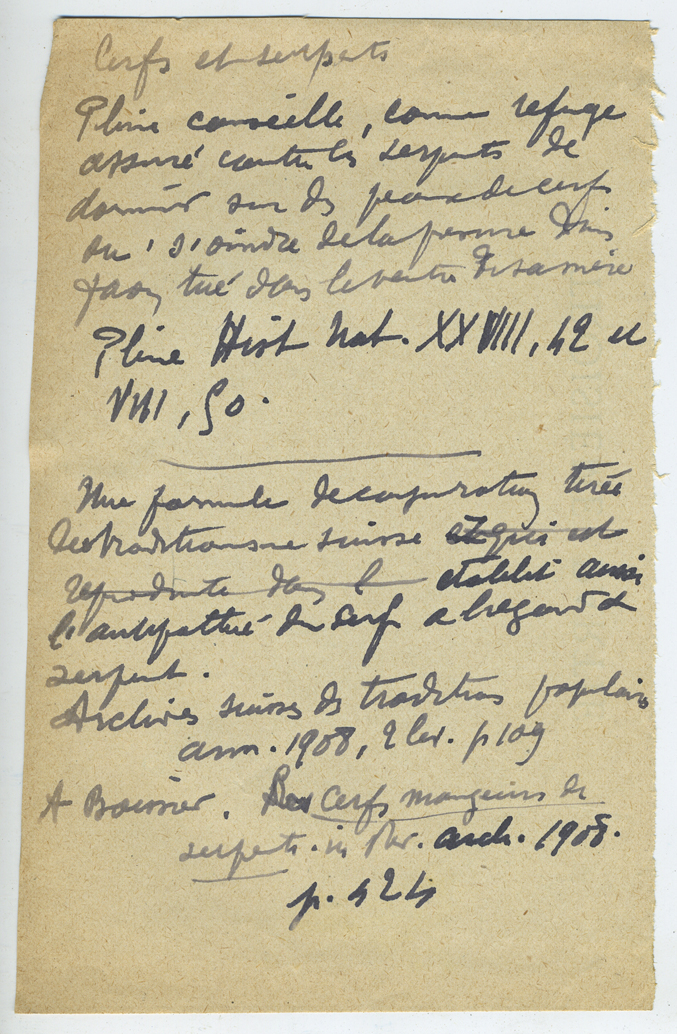 Cerfs et serpents
Pline conseille, comme refuge
assuré contre les serpents de
dormir sur des peaux de cerfs
ou s'oindre de la presure d'un
faon tué dans le ventre de sa mère
Pline Hist Nat. XXVIII, 42 et
VIII, 50.
Une formule de conjuration tirée
des traditions suisse et qui est
reproduite dans l établit aussi
l'antipathie du cerf a l'egard du
serpent.
Archives suisses des traditions populaires
ann. 1908, 2 liv. p 109
A Boissier. Les Cerfs mangeurs de
serpents. in Rev. arch. 1908.
p. 424